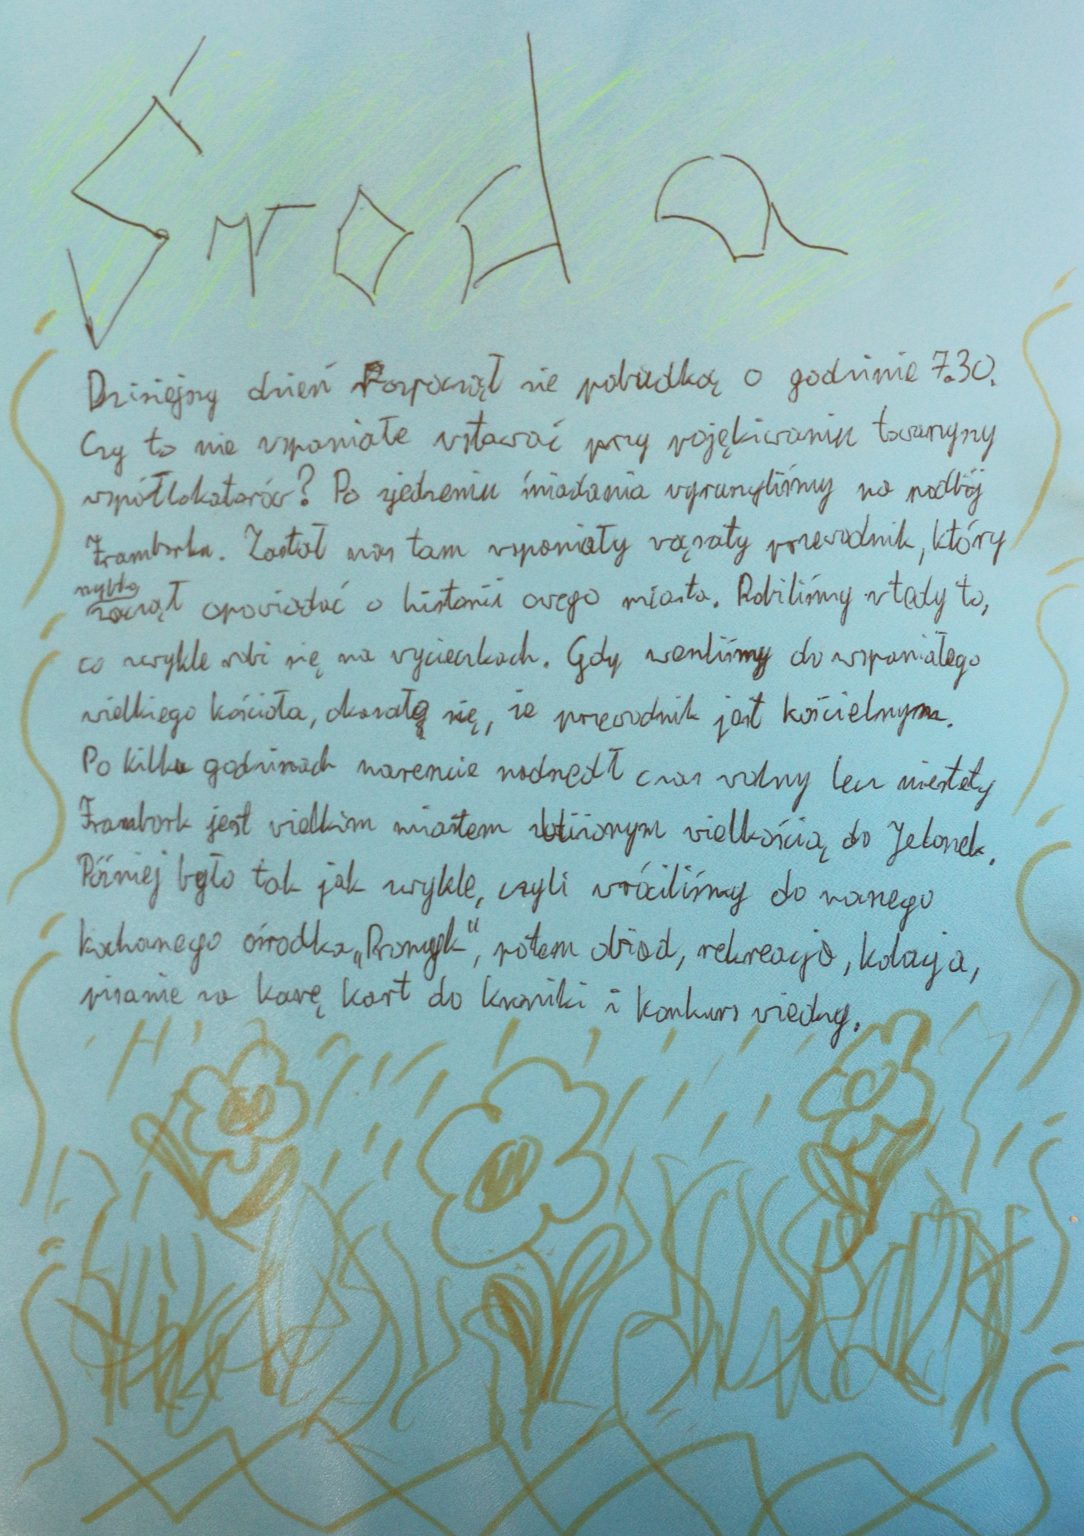 Środa
Dzisiejszy dzień rozpoczął się pobudką o godzinie 7.30.
Czy to nie wspaniałe wstawać przy pojękiwaniu towarzyszy
współlokatorów? Po zjedzeniu śniadania wyruszyliśmy na podbój
Fromborka. Zastał nas tam wspaniały wąsaty przewodnik, który
szybko
zaczął opowiadać o historii owego miasta. Robiliśmy wtedy to,
co zwykle robi się na wycieczkach. Gdy weszliśmy do wspaniałego
wielkiego kościoła, okazało się, że przewodnik jest kościelnym.
Po kilku godzinach nareszcie nadszedł czas wolny lecz niestety
Frombork jest wielkim miastem zbliżonym wielkością do Jelonek.
Później było tak jak zwykle, czyli wróciliśmy do naszego
kochanego ośrodka „Promyk“, potem obiad, rekreacja, kolacja,
pisanie za karę kart do kroniki i konkurs wiedzy.